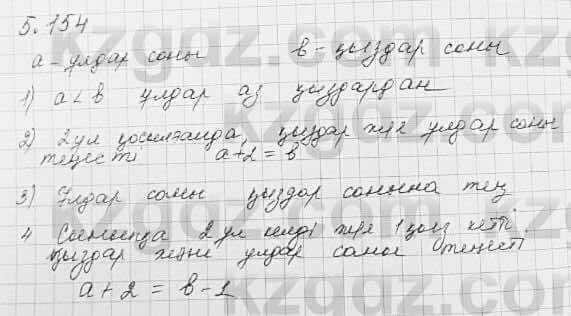 5.154
а - ұлдар саны в - қыздар саны
1) а < в ұлдар аз қыздардан
2) 2 ұл қосылғанда, қыздар мен ұлдар саны
теңесті а+2 = в
3) Ұлдар саны қыздар санына тең
4 Сыныпқа 2 ұл келді және 1 қыз кетті.
Қыздар және ұлдар саны теңесті
а + 2 = в - 1
kzgdz.com